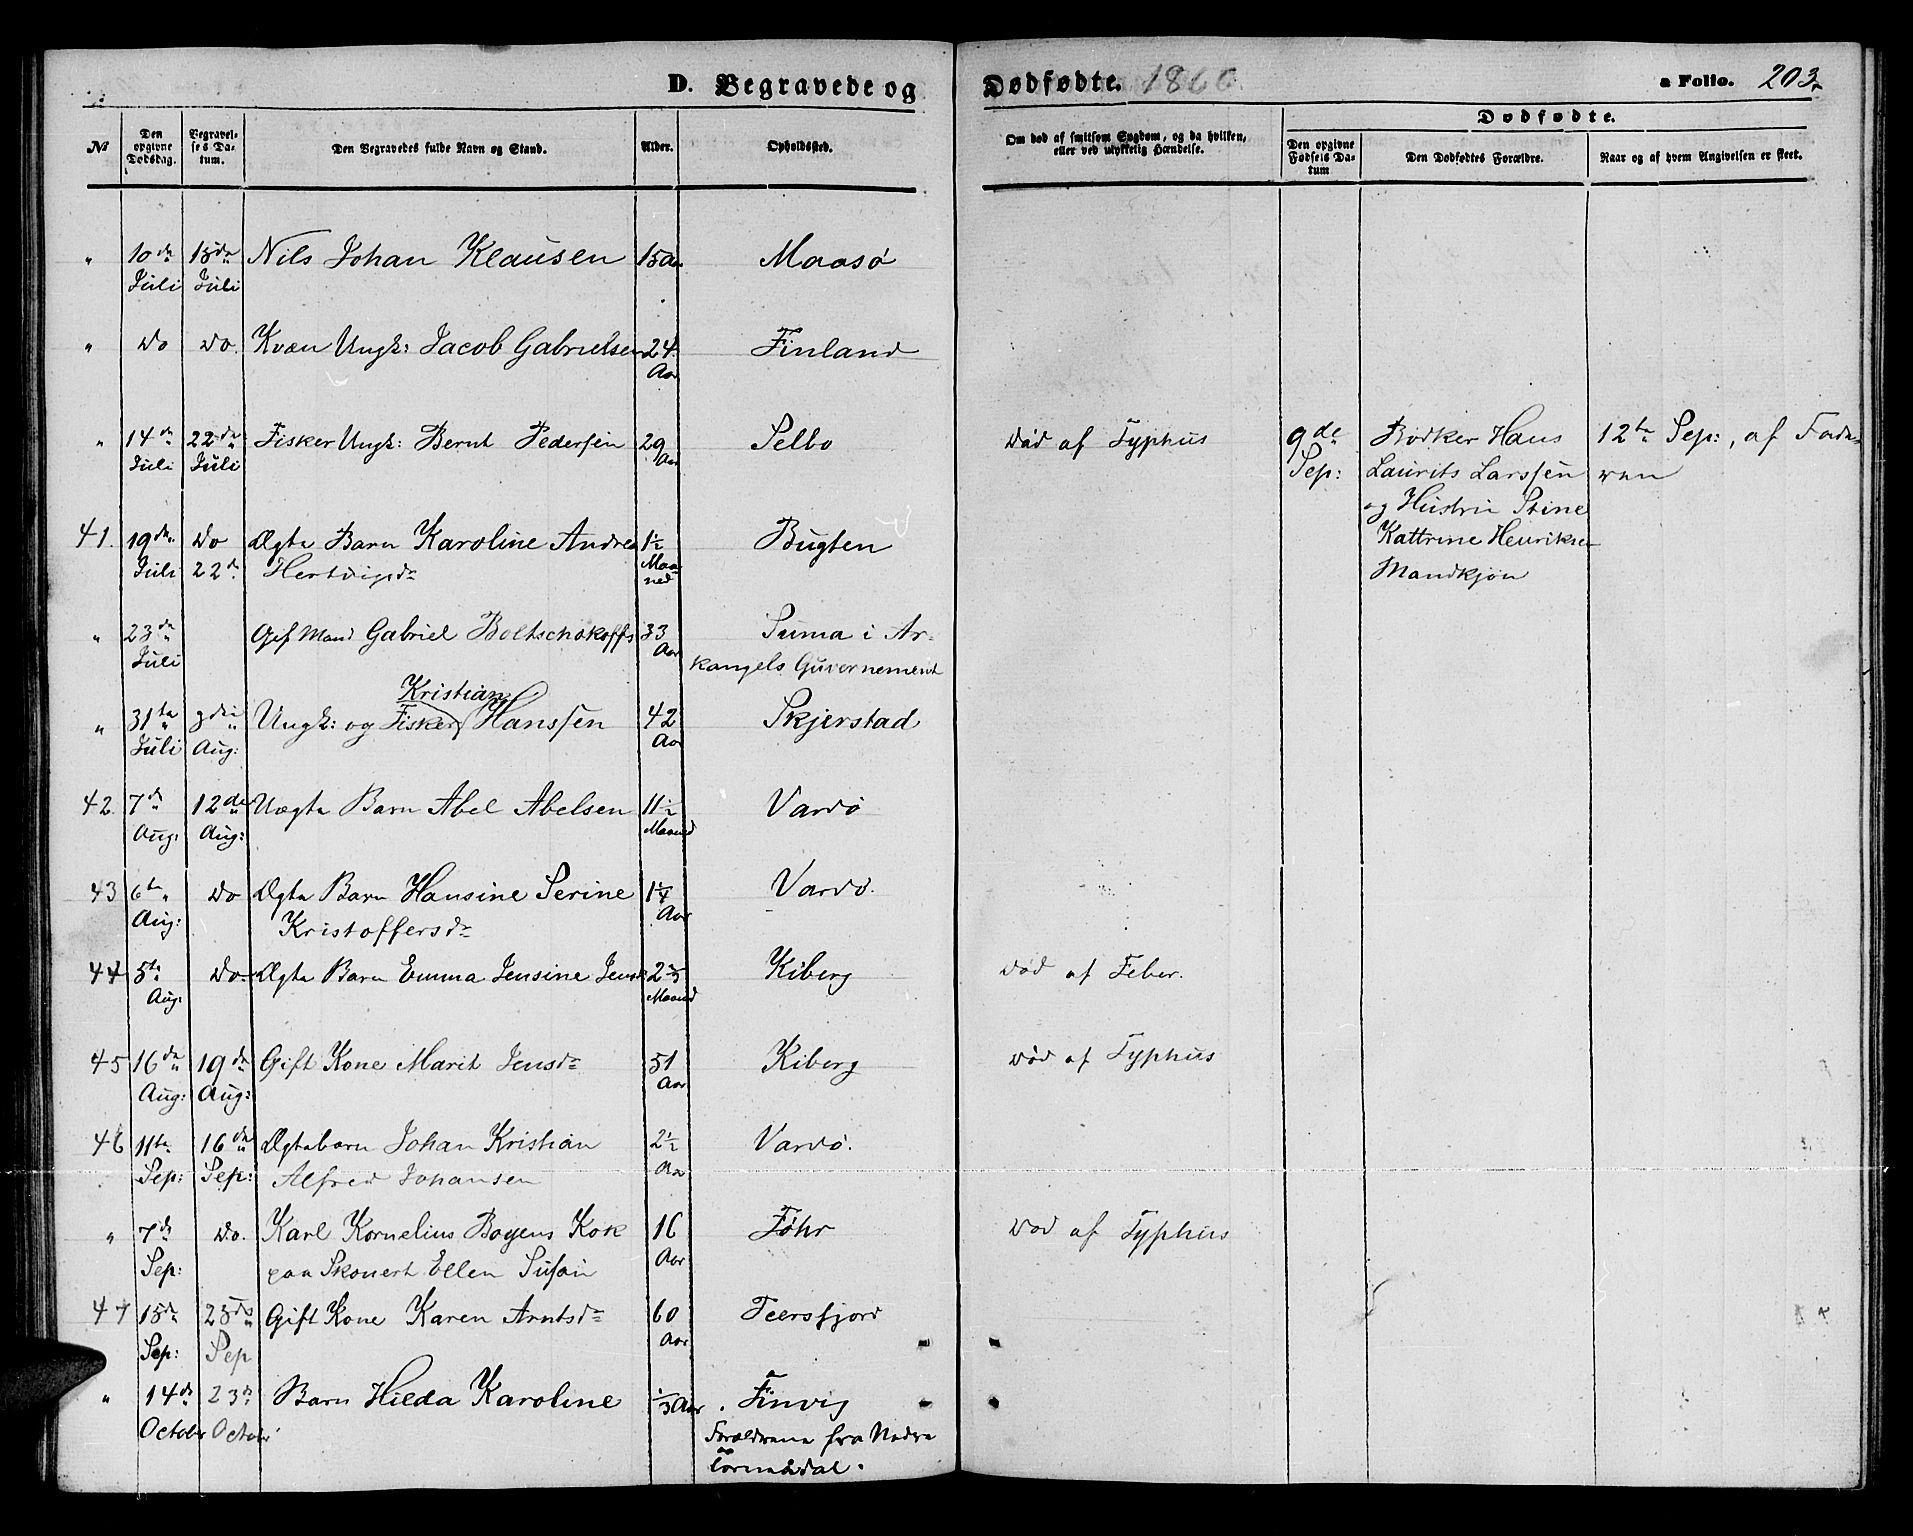 D. Begravede og Dødfødte. 1860. a Folio. 203.
№
Den opgivne Dødsdag.
Begravelses Datum.
Den Begravedes fulde Navn og Stand.
Alder.
Opholdssted.
Om død af smitsom Sygdom, og da hvilken, eller ved ulykkelig Hændelse.
Dødfødte.
Den opgivne Fødsels Datum
Den Dødfødtes Forældre.
Naar og af hvem Angivelsen er skeet.
" 10de Juli 15de Juli Nils Johan Klausen 15 Aar Maasø
" do do. Kvæn Ungk: Jacob Gabrielsen 24 Aar Finland
" 14de Juli 22de Juli Fisker Ungk: Bernt Pedersen 29 Aar Selbo død af Typhus
9de Sep: Bødker Hans 12te Sep:, af Fade-
Laurits Larssen ren
og Hustru Stine
Kattrine Henriksen
Mandkjøn
41. 19de Juli do 22de Ægte Barn Karoline Andrea 1½ Maaned Bugten
Hertvigsdr
" 23de Juli Gift Mand Gabriel Boltschakoffs 33 Aar Suma i Ar-
kangels Guvernement
Kristian
" 31te Juli 3die Aug: Ungk: og Fisker Hanssen 42 Aar Skjerstad
42. 7de Aug: 12de Aug: Uægte Barn Abel Abelsen 11½ Maaned Vardø
43 6te Aug: do Ægte Barn Hansine Serine 1¼ Aar Vardø.
Kristoffersdr
44 5te Aug: do Ægte Barn Emma Jensine Jensd 2 Maaned Kiberg død af Feber.
45 16de Aug: 19de Aug: Gift Kone Marit Jensdr 51 Aar Kiberg død af Typhus
46 11te Sep: 16de Sep: Ægtebarn Johan Kristian 2½ Aar Vardø.
Alfred Johansen
" 7de Sep: do. Karl Kornelius Boyens Kok 16 Aar Føhr død af Typhus
paa Skonert Ellen Susan
47 15de Sep: 23de Sep Gift Kone Karen Arntsdr 60 Aar Teersfjord
" 14de October 23de October Barn Hilda Karoline ⅓ Aar Finvig
Forældrene fra Nedre
Torneådal.